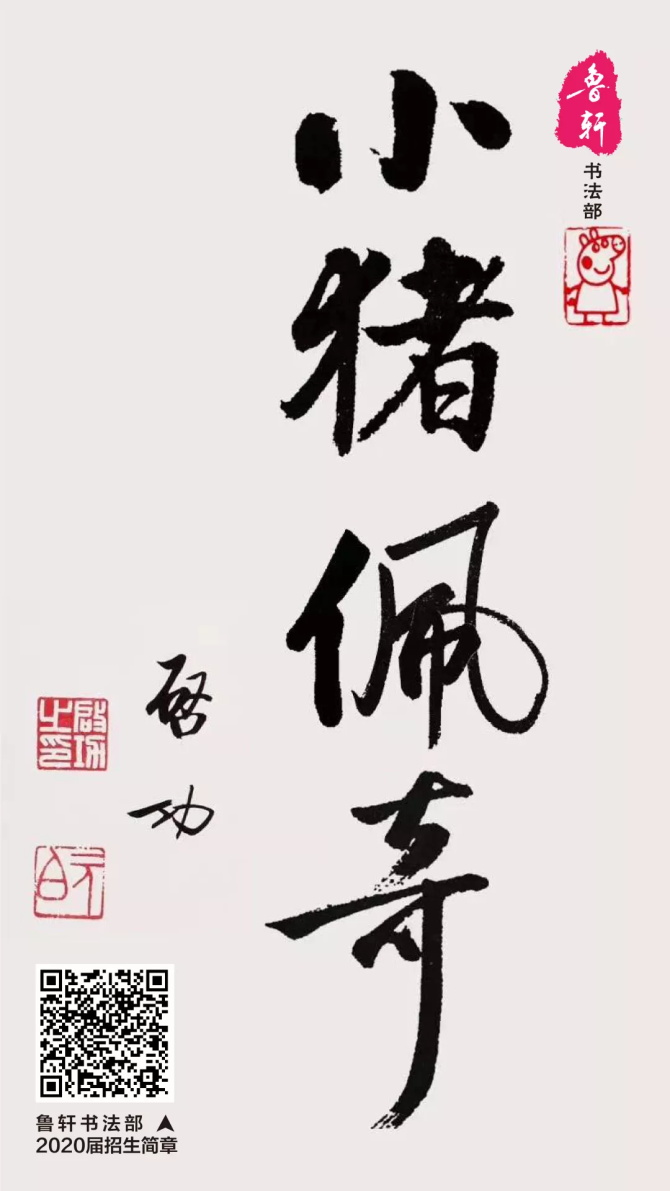 鲁轩
书法部
小猪佩奇
启功
启功之印
元白
鲁轩书法部
2020届招生简章